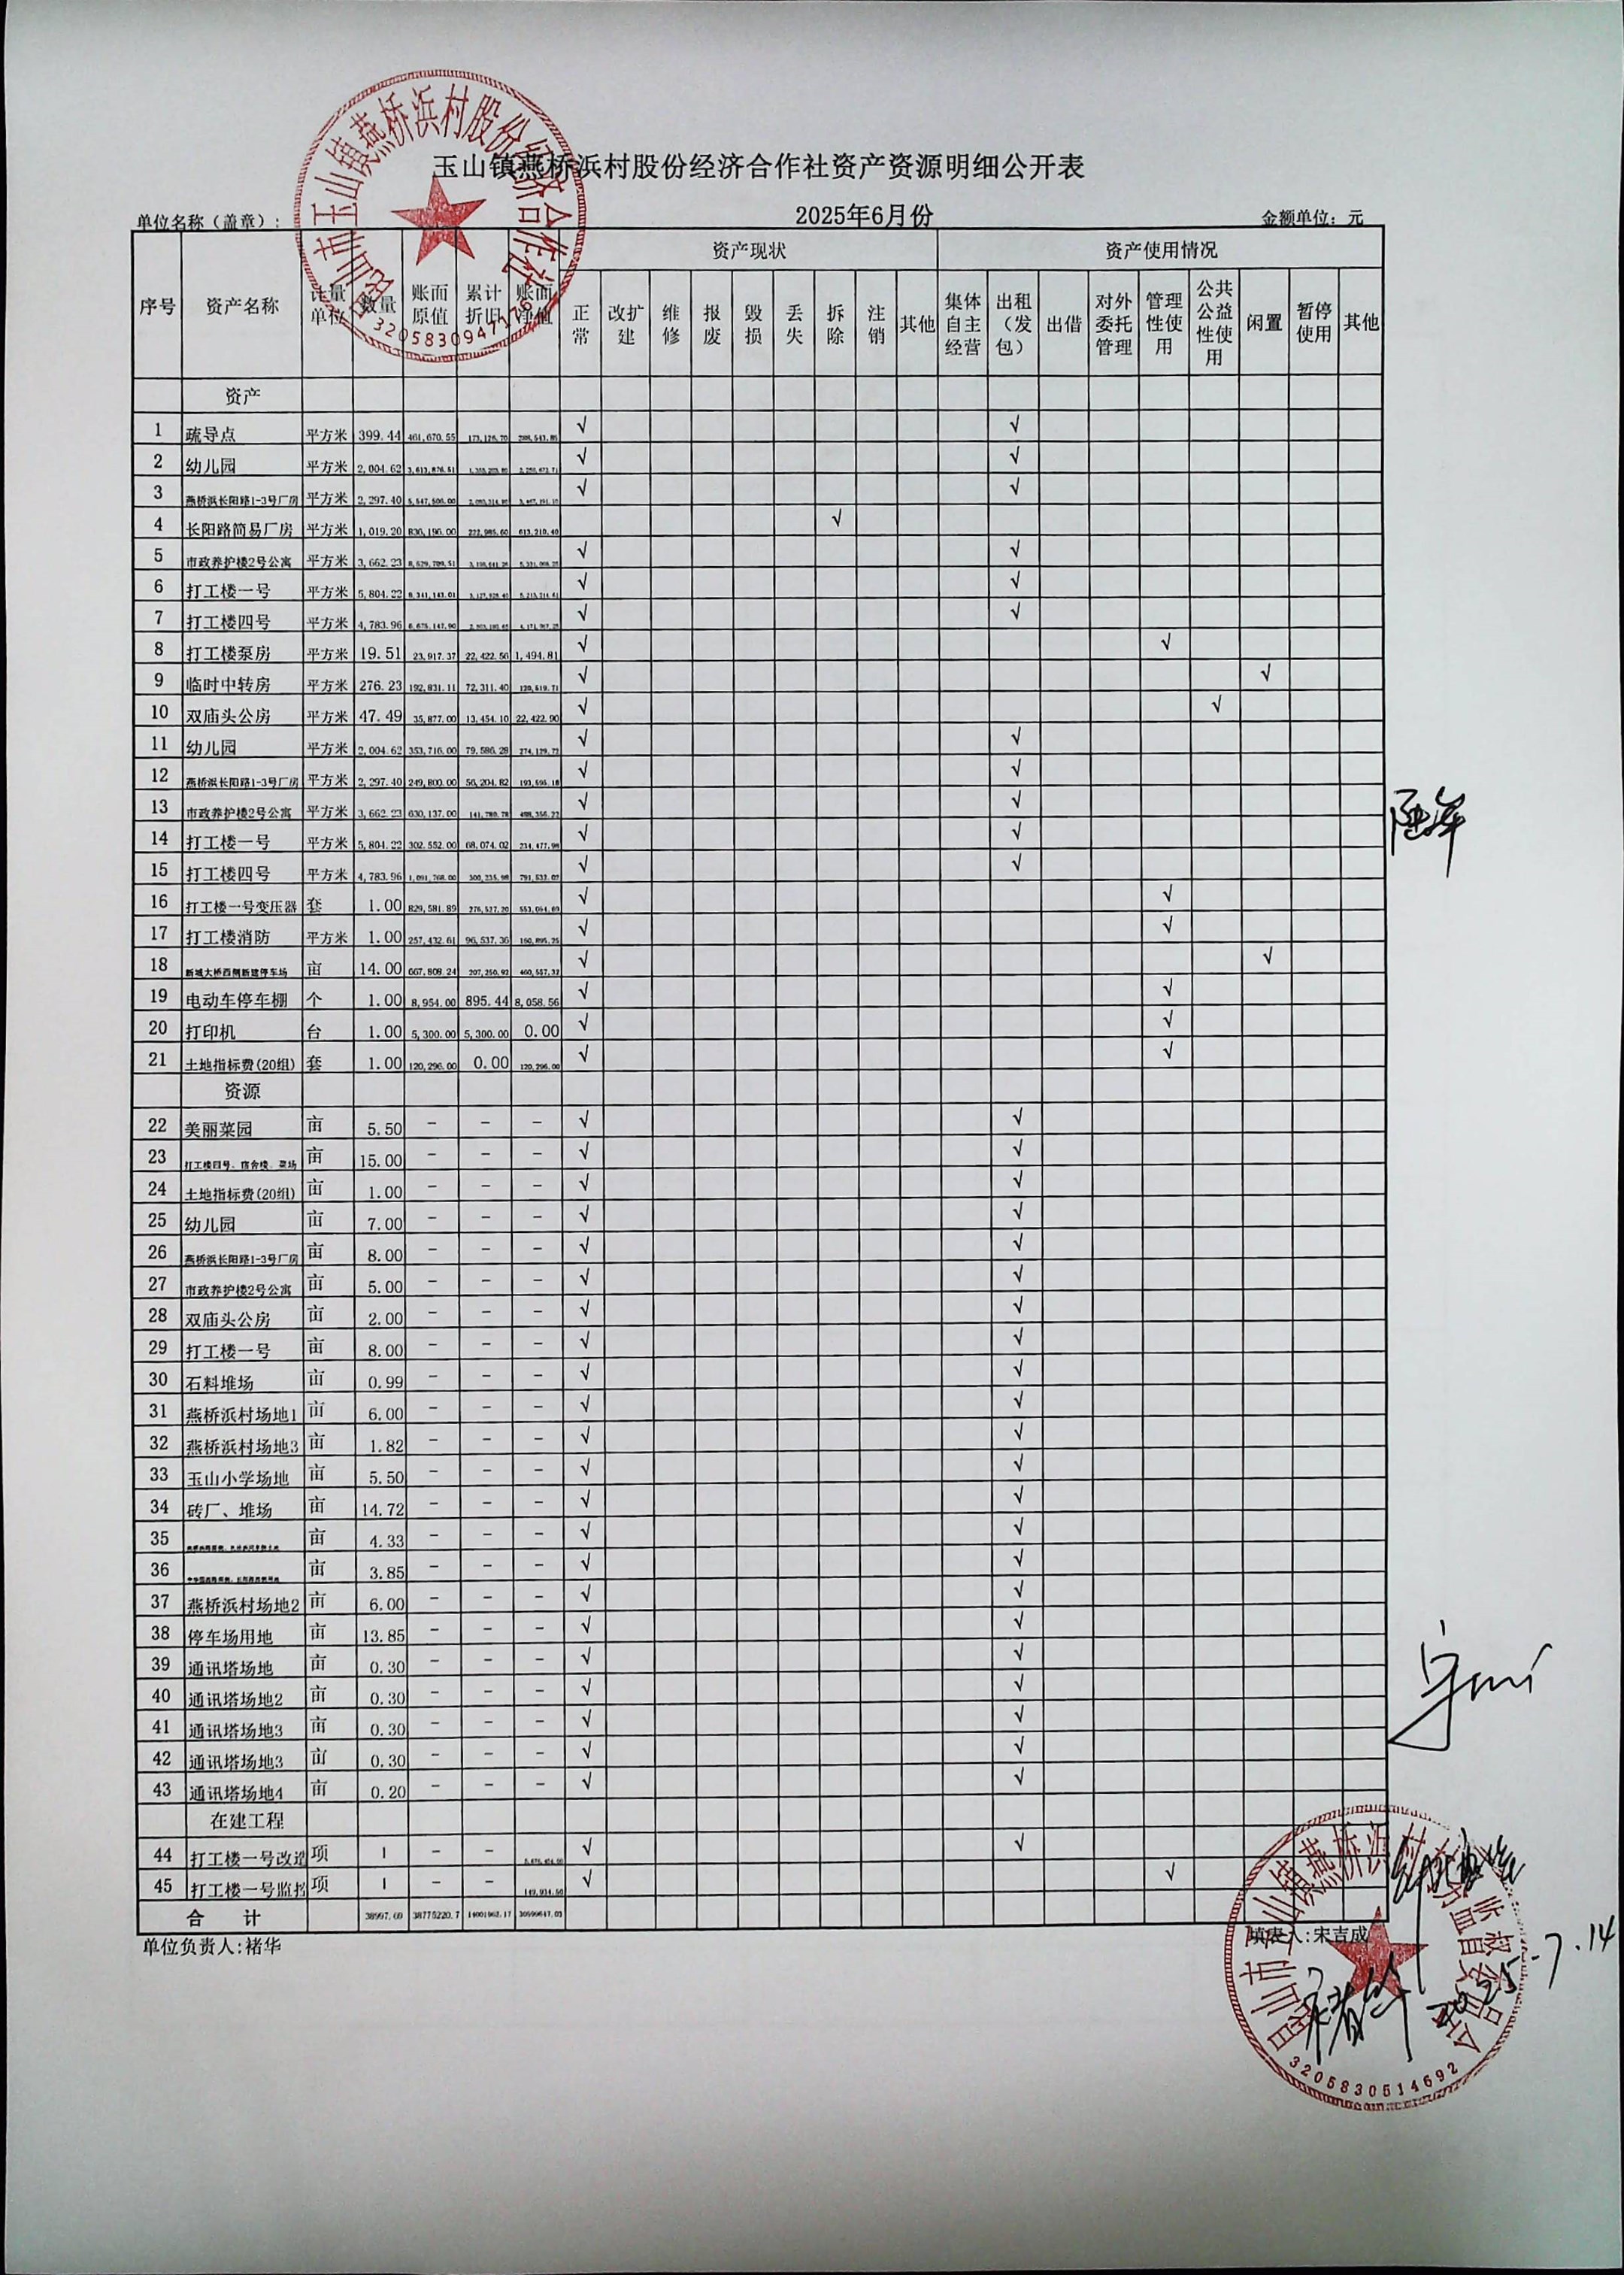 玉山镇燕桥浜村股份经济合作社资产资源明细公开表
2025年6月份
单位名称（盖章）: 金额单位：元
昆山市玉山镇燕桥浜村股份经济合作社
3205830947176
序号 资产名称 计量单位 数量 账面原值 累计折旧 账面净值 资产现状 资产使用情况
正常 改扩建 维修 报废 毁损 丢失 拆除 注销 其他 集体自主经营 出租（发包） 出借 对外委托管理 管理性使用 公共公益性使用 闲置 暂停使用 其他
资产
1 疏导点 平方米 399.44 461,670.55 173,126.70 √ √
2 幼儿园 平方米 2,004.62 √ √
3 燕桥浜长阳路1-3号厂房 平方米 2,297.40 √ √
4 长阳路简易厂房 平方米 1,019.20 836,196.00 222,985.60 613,210.40 √
5 市政养护楼2号公寓 平方米 3,662.23 √ √
6 打工楼一号 平方米 5,804.22 √ √
7 打工楼四号 平方米 4,783.96 √ √
8 打工楼泵房 平方米 19.51 23,917.37 22,422.56 1,494.81 √ √
9 临时中转房 平方米 276.23 192,831.11 72,311.40 120,519.71 √ √
10 双庙头公房 平方米 47.49 35,877.00 13,454.10 22,422.90 √ √
11 幼儿园 平方米 2,004.62 353,716.00 79,586.28 274,129.72 √ √
12 燕桥浜长阳路1-3号厂房 平方米 2,297.40 249,800.00 56,204.82 193,595.18 √ √
13 市政养护楼2号公寓 平方米 3,662.23 630,137.00 141,780.78 488,356.22 √ √
14 打工楼一号 平方米 5,804.22 302,552.00 68,074.02 234,477.98 √ √
15 打工楼四号 平方米 4,783.96 1,091,768.00 300,235.98 791,532.02 √ √
16 打工楼一号变压器 套 1.00 829,581.89 276,527.20 553,054.69 √ √
17 打工楼消防 平方米 1.00 257,432.61 96,537.36 160,895.25 √ √
18 新城大桥西侧新建停车场 亩 14.00 667,808.24 207,250.92 460,557.32 √ √
19 电动车停车棚 个 1.00 8,954.00 895.44 8,058.56 √ √
20 打印机 台 1.00 5,300.00 5,300.00 0.00 √ √
21 土地指标费(20组) 套 1.00 120,296.00 0.00 120,296.00 √ √
资源
22 美丽菜园 亩 5.50 － － － √ √
23 打工楼四号、宿舍楼、菜场 亩 15.00 － － － √ √
24 土地指标费(20组) 亩 1.00 － － － √ √
25 幼儿园 亩 7.00 － － － √ √
26 燕桥浜长阳路1-3号厂房 亩 8.00 － － － √ √
27 市政养护楼2号公寓 亩 5.00 － － － √ √
28 双庙头公房 亩 2.00 － － － √ √
29 打工楼一号 亩 8.00 － － － √ √
30 石料堆场 亩 0.99 － － － √ √
31 燕桥浜村场地1 亩 6.00 － － － √ √
32 燕桥浜村场地3 亩 1.82 － － － √ √
33 玉山小学场地 亩 5.50 － － － √ √
34 砖厂、堆场 亩 14.72 － － － √ √
35 亩 4.33 － － － √ √
36 亩 3.85 － － － √ √
37 燕桥浜村场地2 亩 6.00 － － － √ √
38 停车场用地 亩 13.85 － － － √ √
39 通讯塔场地 亩 0.30 － － － √ √
40 通讯塔场地2 亩 0.30 － － － √ √
41 通讯塔场地3 亩 0.30 － － － √ √
42 通讯塔场地3 亩 0.30 － － － √ √
43 通讯塔场地4 亩 0.20 － － － √ √
在建工程
44 打工楼一号改造 项 1 － － √ √
45 打工楼一号监控 项 1 － － 149,934.50 √ √
合 计 38997.69 38775220.7
单位负责人:褚华 填表人:宋吉成
褚华
2025-7.14
3205830514692